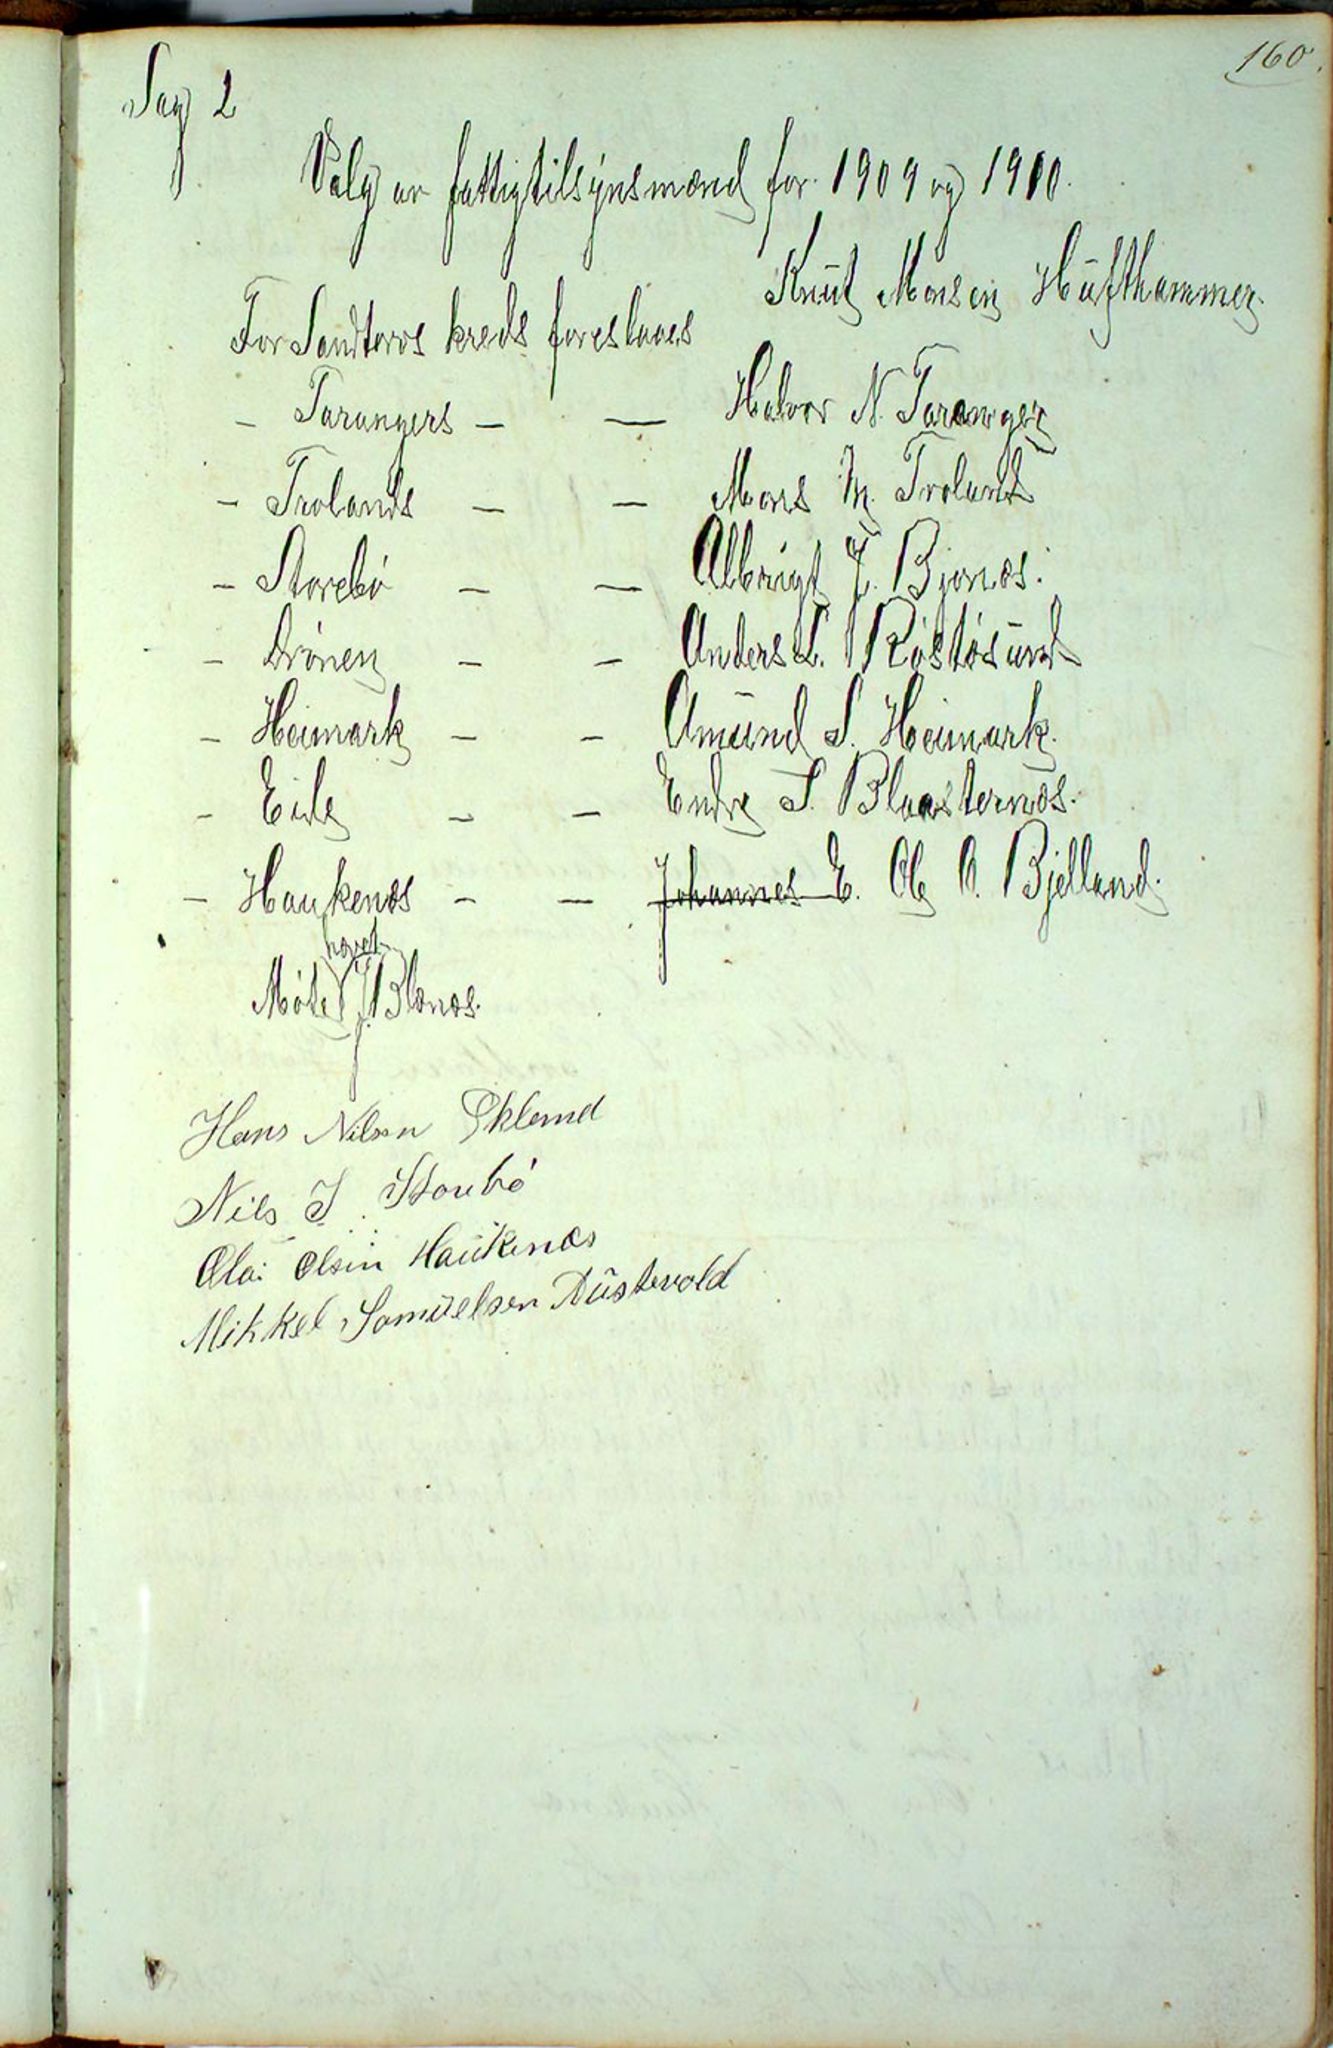 160.
Sag 2
Valg av fattigtilsynsmænd for 1909 og 1910.
For Sandtorvs kreds foreslaaes Knut Monsen Hufthammer.
– Tarangers – — Halvor N. Taranger
– Trolands – – Mons M. Troland
– Storebø – — Albrigt J. Bjønæs.
– Drönen – – Anders L. Röstösund
– Heimark – – Amund S. Heimark.
– Eide – – Endre S. Blaasternæs.
– Haukenæs – – Johannes E. Ole O. Bjelland.
hævet
Möte J. Blænæs.
Hans Nilsen Eklend
Nils J. Storebö
Olai Olsen Haukenæs
Mikkel Samuelsen Dustevold